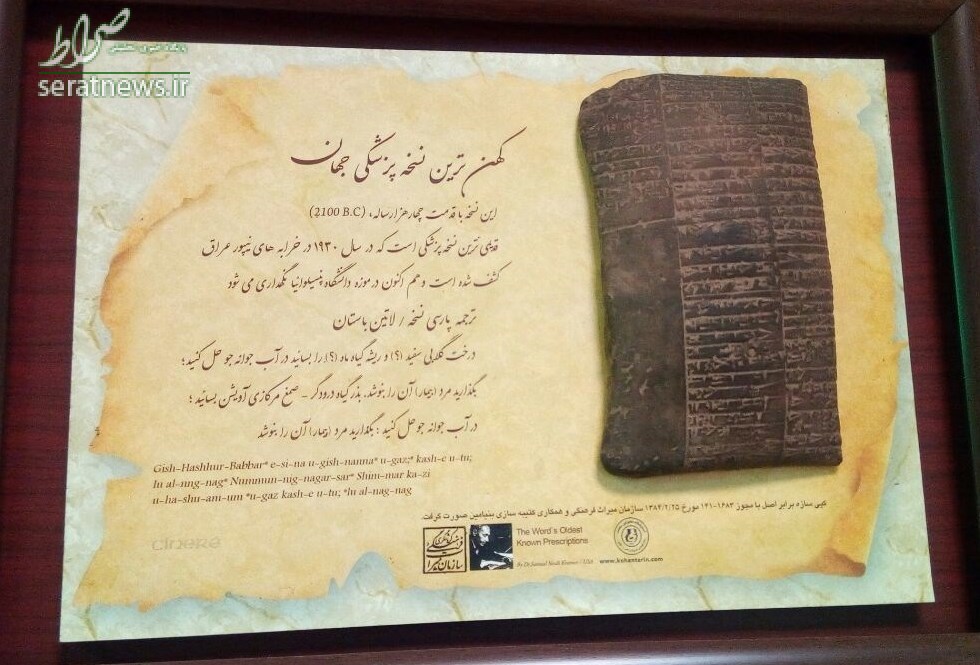 صراط
پایگاه خبری تحلیلی
seratnews.ir
کهن ترین نسخه پزشکی جهان
این نسخه با قدمت چهار هزار ساله، (2100 B.C)
قدیمی ترین نسخه پزشکی است که در سال ۱۹۳۰ در خرابه های نیپور عراق
کشف شده است و هم اکنون در موزه دانشگاه پنسیلوانیا نگهداری می شود
ترجمه پارسی نسخه / لاتین باستان
درخت گلابی سفید (؟) و ریشه گیاه ماه (؟) را بسائید در آب جوانه جو حل کنید؛
بگذارید مرد (بیمار) آن را بنوشد. بذر گیاه درودگر - صمغ مرکازی آویشن بسائید ؛
در آب جوانه جو حل کنید ؛ بگذارید مرد (بیمار) آن را بنوشد
Gish-Hashhur-Babbar* e-si-na u-gish-nanna* u-gaz;* kash-e u-tu;
lu al-nng-nag* Nummun-nig-nagar-sar* Shim-mar ka-zi
u-ha-shu-am-um *u-gaz kash-e u-tu; *lu al-nag-nag
کپی سازه برابر اصل با مجوز ۱۶۸۳-۱۴۱ مورخ ۱۳۸۴/۲/۲۵ سازمان میراث فرهنگی و همکاری کتیبه سازی بنیامین صورت گرفت.
The Word's Oldest
Known Prescriptions
By Dr.Samuel Noah Kramer - USA
www.kohantarin.com